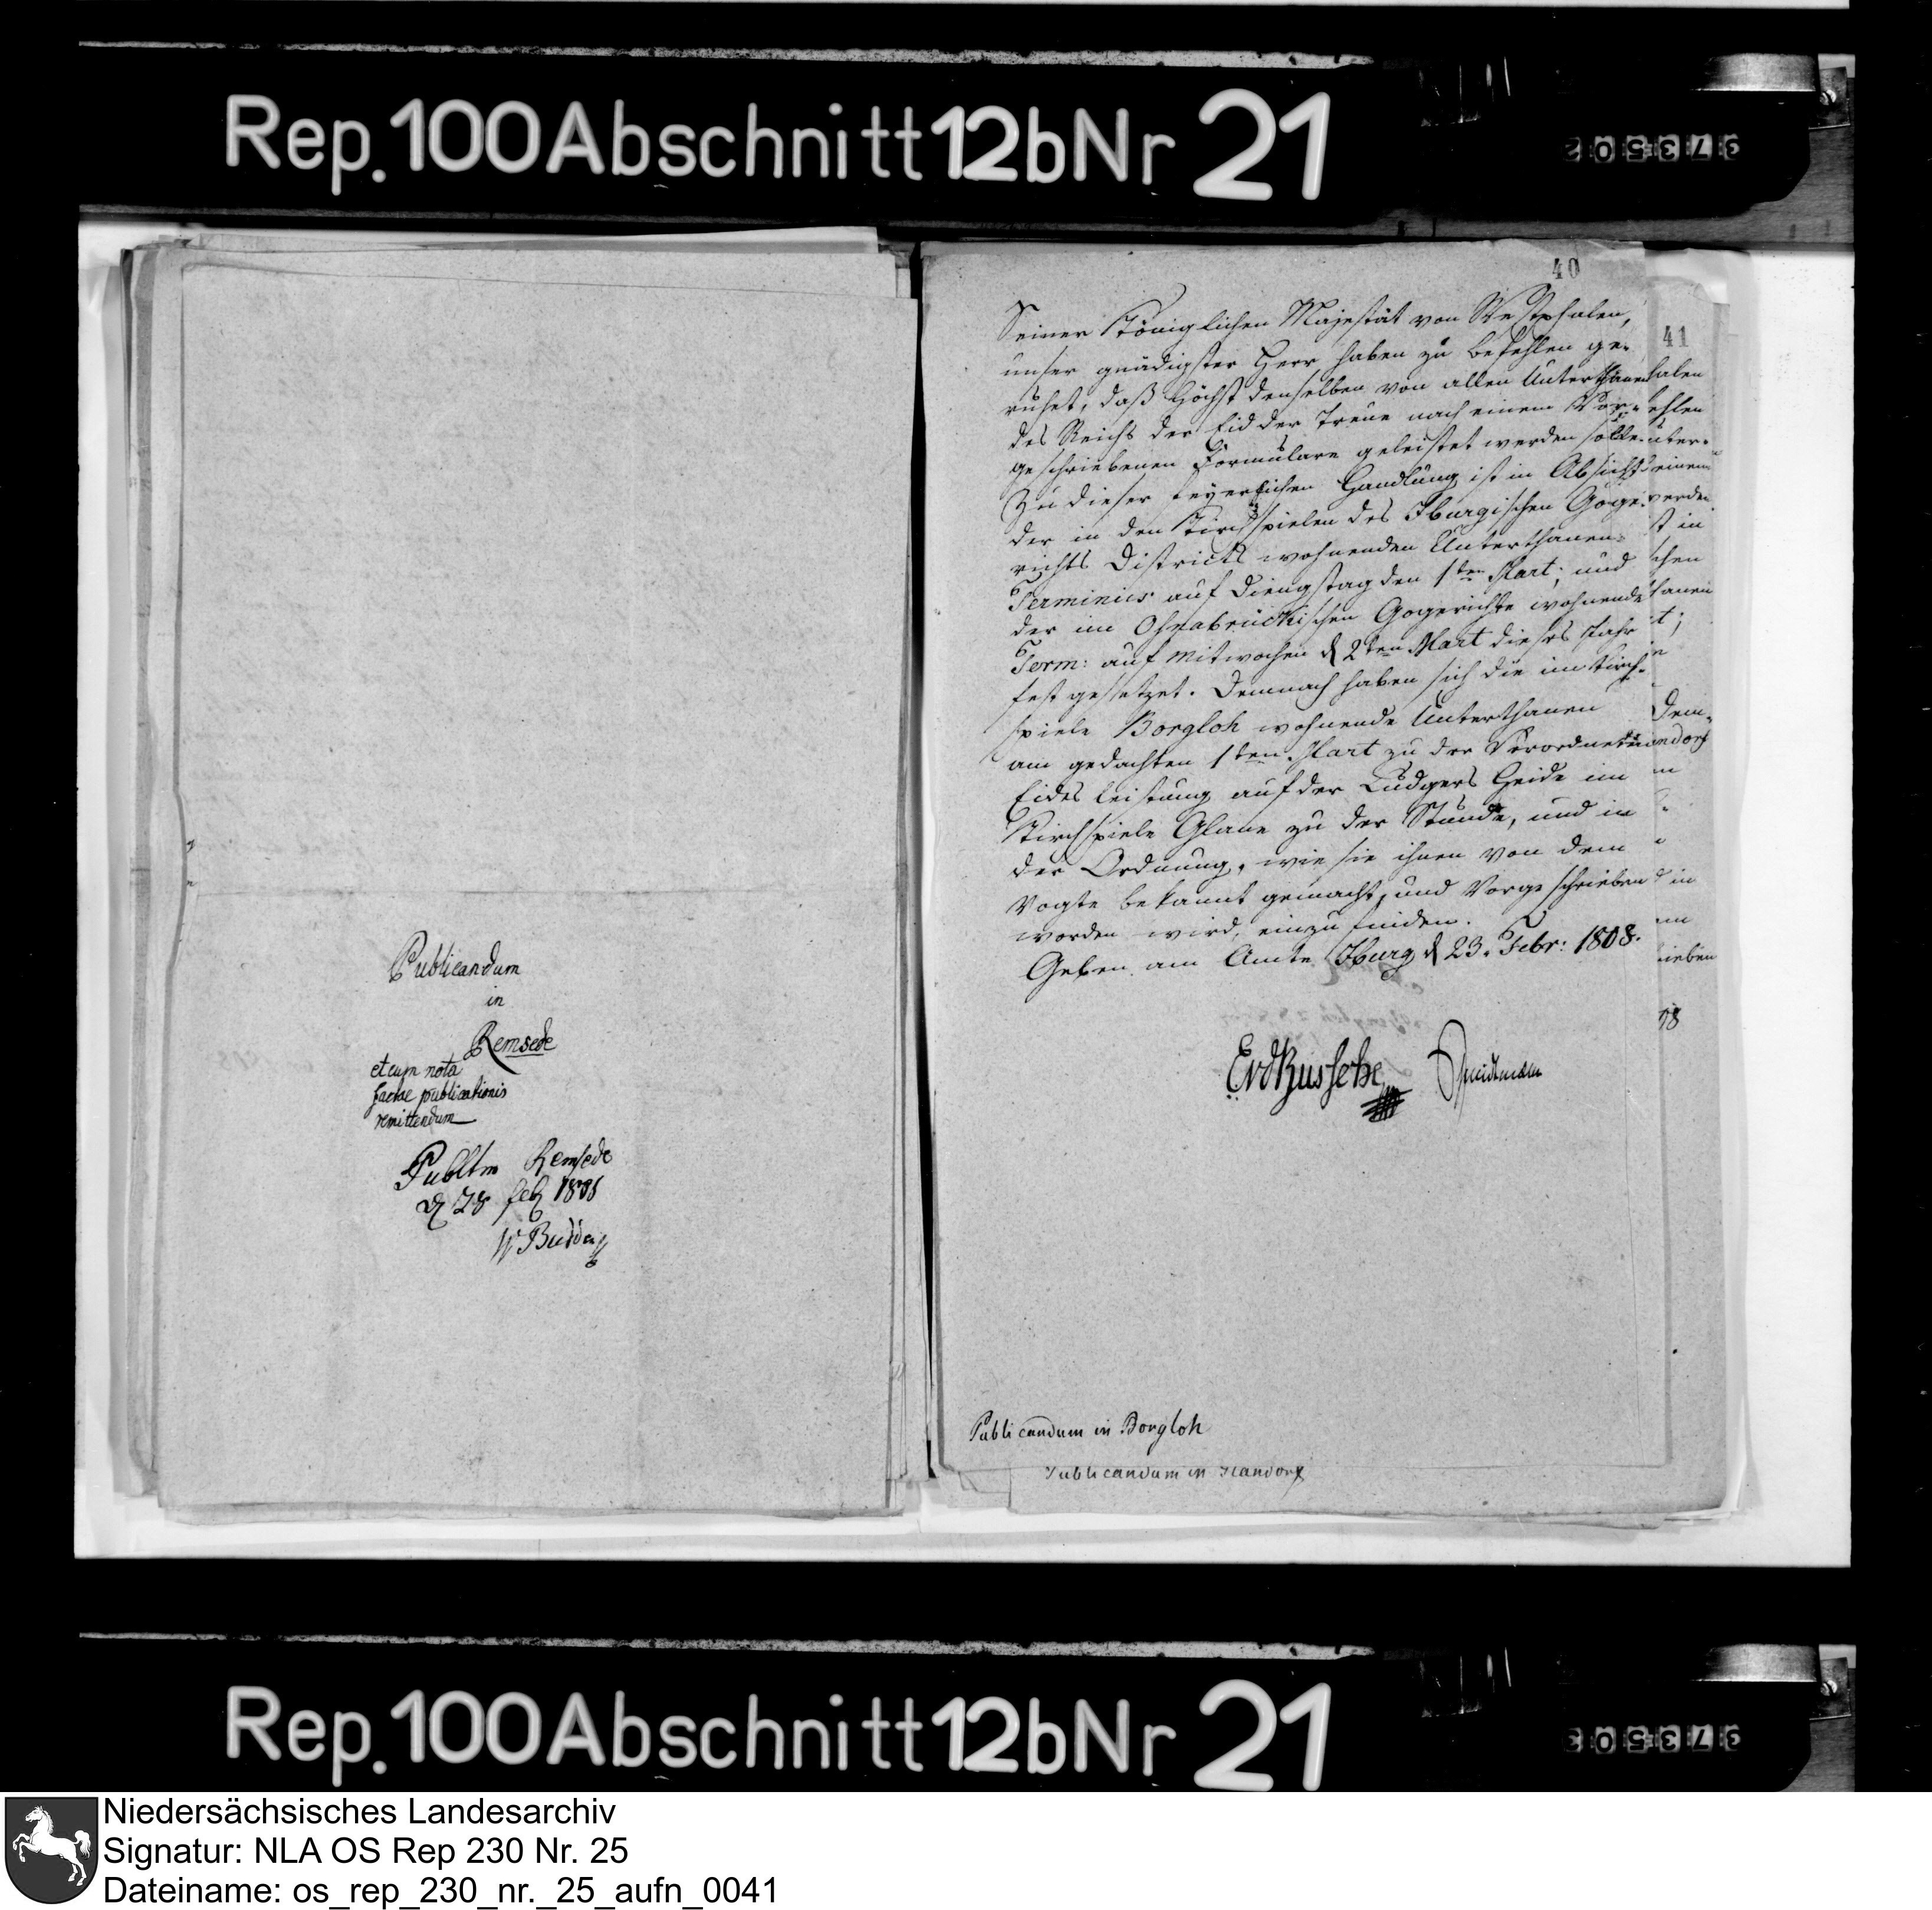 Rep. 100 Abschnitt 12b Nr 21
Publicandum
in
Remsede
et cum nota
factae publicationis
remittendum
Publtm Remsede
d 28 feb 1808
W Budde
40
Seiner Königlichen Majestät von Westphalen,
unser gnädigster Herr haben zu befehlen ge-
ruhet, daß Höchst denselben von allen Unterthanen
des Reichs der Eid der Treue nach einem Vor-
geschriebenen Formulare geleistet werden solle.
Zu dieser feyerlichen Handlung ist in Absicht
der in den Kirchspielen des Iburgischen Goge-
richts Districts wohnenden Unterthanen
Terminus auf Diengstag den 1ten Mart; und
der im Osnabrückischen Gogerichte wohnende
Term: auf Mitwochen d 2ten Mart dieses Jahr
fest gesetzet. Demnach haben sich die im Kirch-
spiele Borgloh wohnende Unterthanen
am gedachten 1ten Mart zu der Verordneten
Eides leistung auf der Ludgers Heide im
Kirchspiele Glane zu der Stunde, und in
der Ordnung, wie sie ihnen von dem
Vogte bekannt gemacht, und Vorgeschrieben
worden wird, einzufinden.
Geben am Amte Iburg d 23. Febr: 1808.
EvdBussche
Publicandum in Borgloh
41
halen
ehlen
unter-
einem
werden
st in
schen
thanen
t;
Dem-
landorf
m
d in
em
rieben
08
Publicandum in Glandorf
Rep. 100 Abschnitt 12b Nr 21
Niedersächsisches Landesarchiv
Signatur: NLA OS Rep 230 Nr. 25
Dateiname: os_rep_230_nr._25_aufn_0041